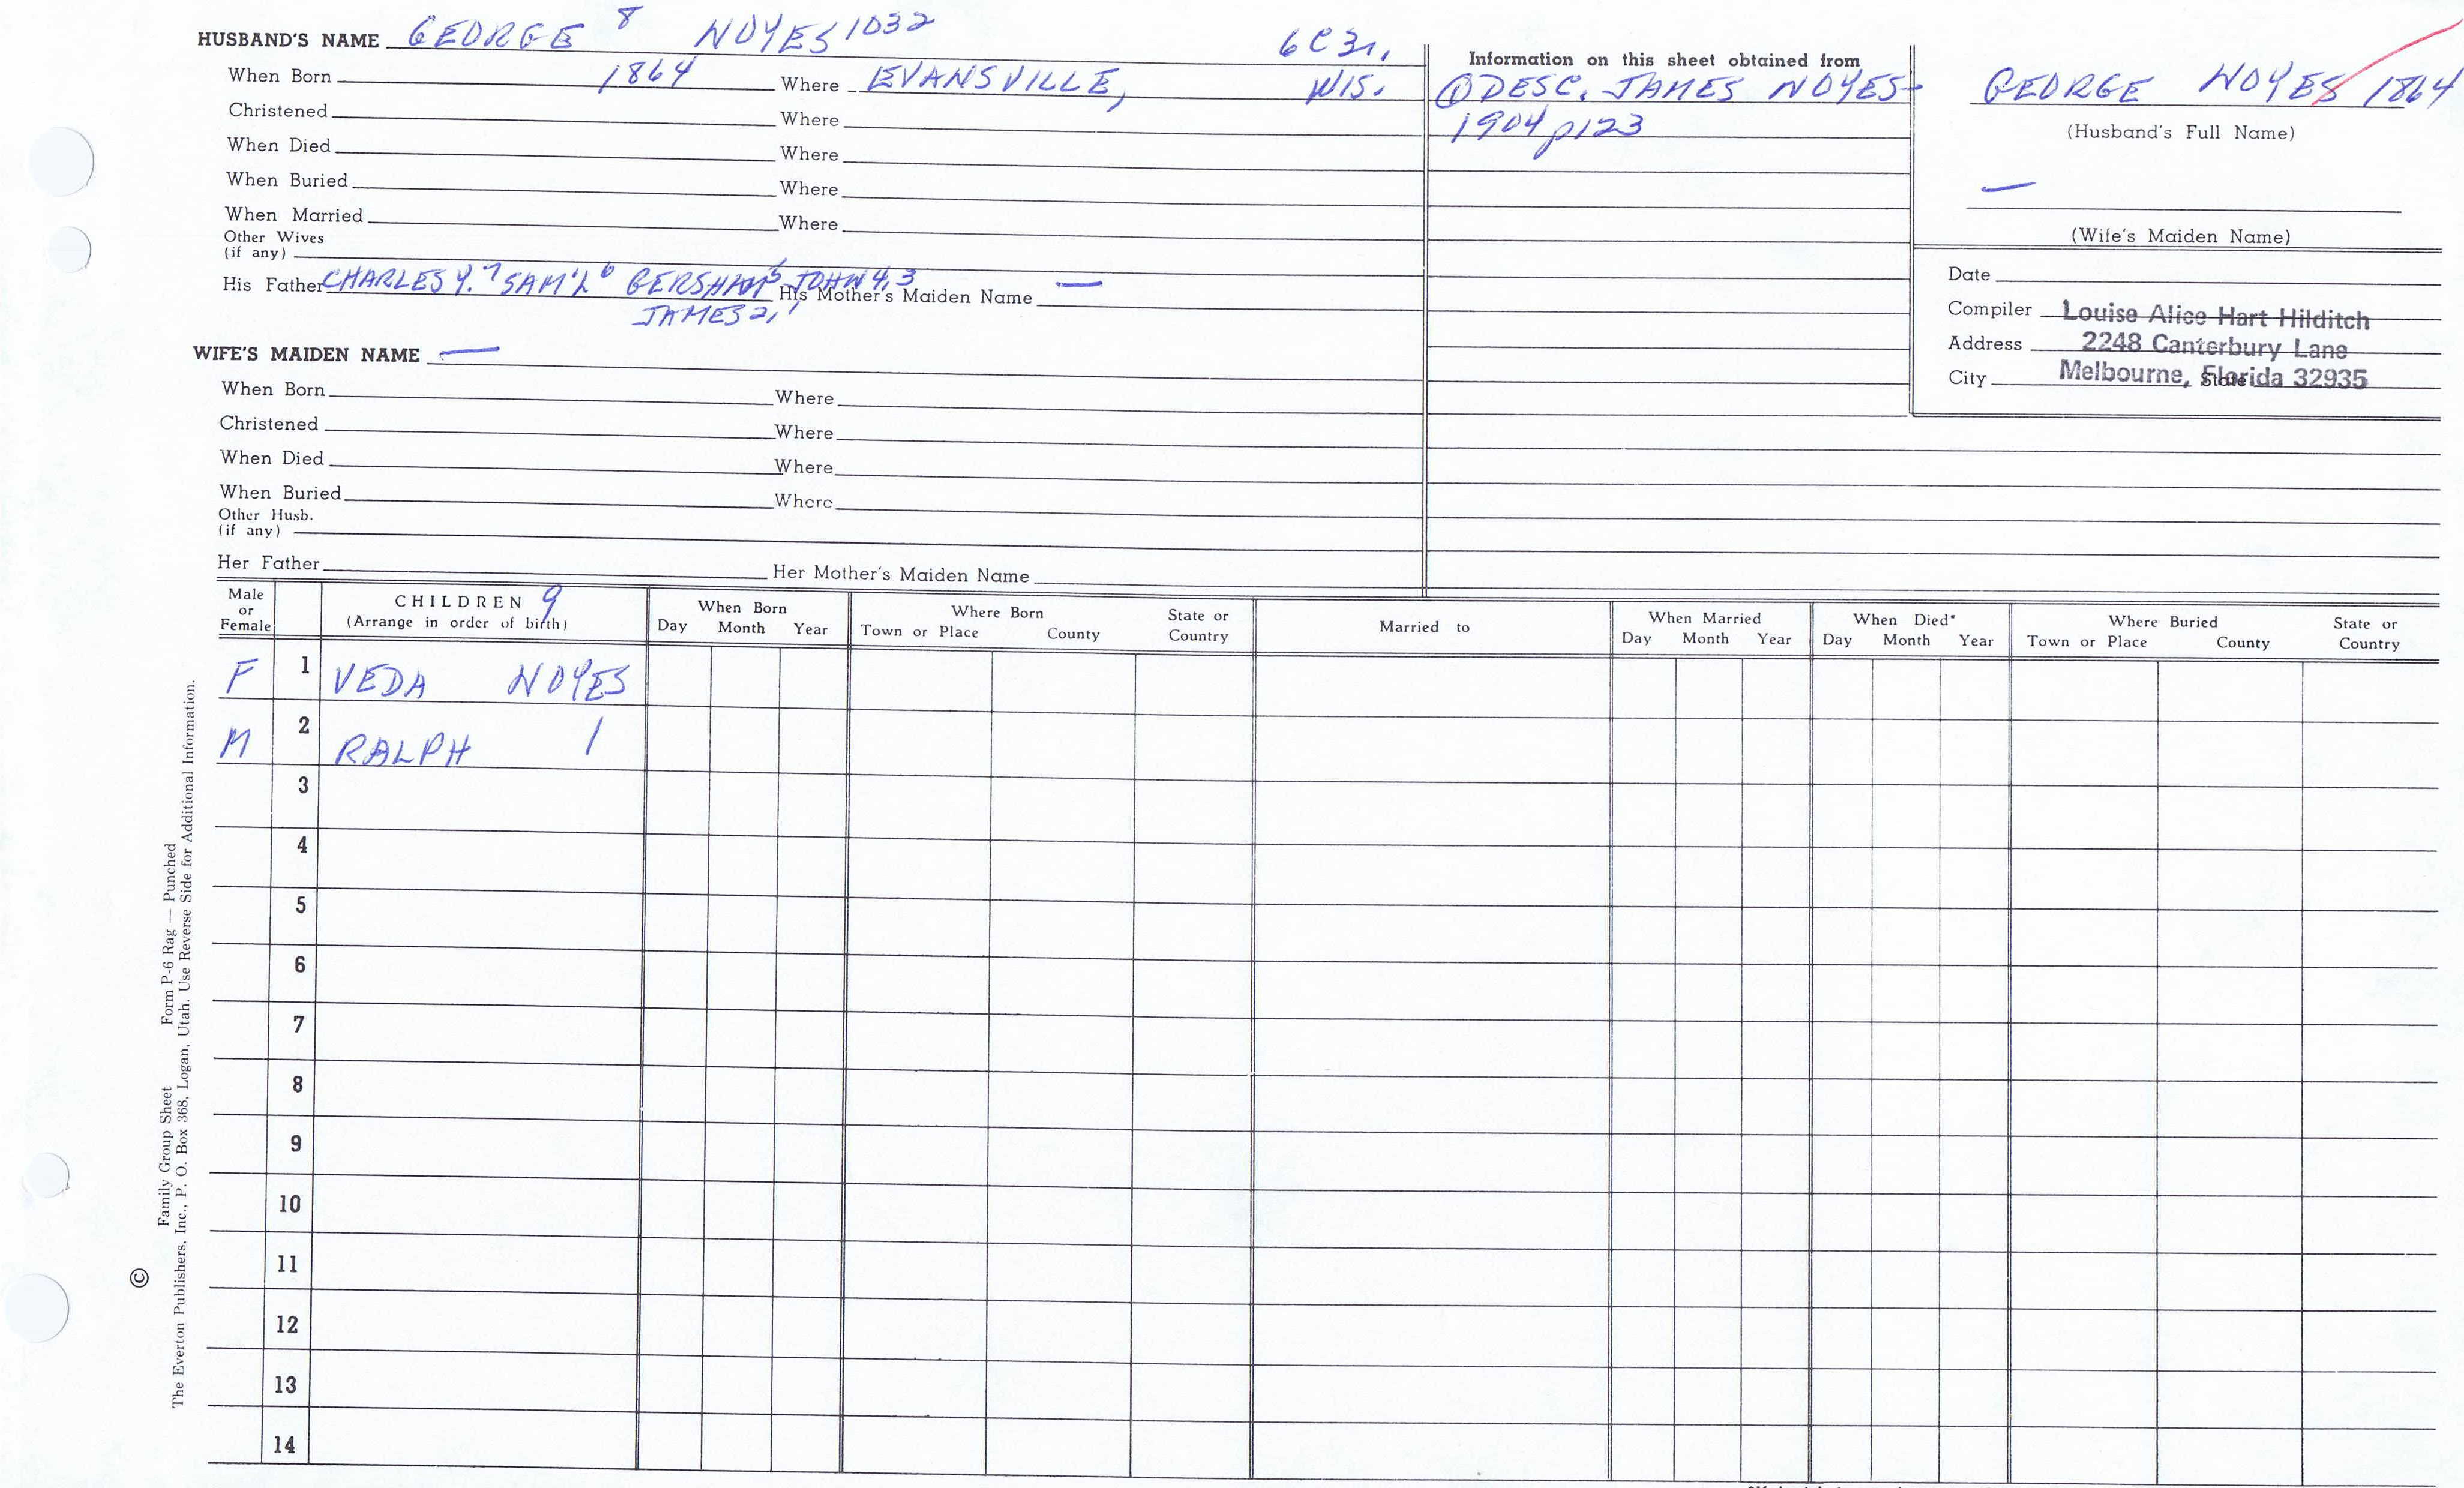 HUSBAND'S NAME GEORGE 8 NOYES 1032 6C3r,
When Born 1864 Where EVANSVILLE, WIS.
Christened Where
When Died Where
When Buried Where
When Married Where
Other Wives
(if any)
His Father CHARLES Y.7 SAM'L6 GERSHAM5 JOHN 4,3 His Mother's Maiden Name —
JAMES 2,1
WIFE'S MAIDEN NAME —
When Born Where
Christened Where
When Died Where
When Buried Where
Other Husb.
(if any)
Her Father Her Mother's Maiden Name
Information on this sheet obtained from
① DESC. JAMES NOYES-
1904 p123
GEORGE NOYES 1864
(Husband's Full Name)
—
(Wife's Maiden Name)
Date
Compiler Louise Alice Hart Hilditch
Address 2248 Canterbury Lane
City Melbourne, Florida 32935 State
Male or Female CHILDREN 9 (Arrange in order of birth) When Born Day Month Year Where Born Town or Place County State or Country Married to When Married Day Month Year When Died* Day Month Year Where Buried Town or Place County State or Country
F 1 VEDA NOYES
M 2 RALPH /
3
4
5
6
7
8
9
10
11
12
13
14
© Family Group Sheet Form P-6 Rag — Punched
The Everton Publishers, Inc., P. O. Box 368, Logan, Utah. Use Reverse Side for Additional Information.